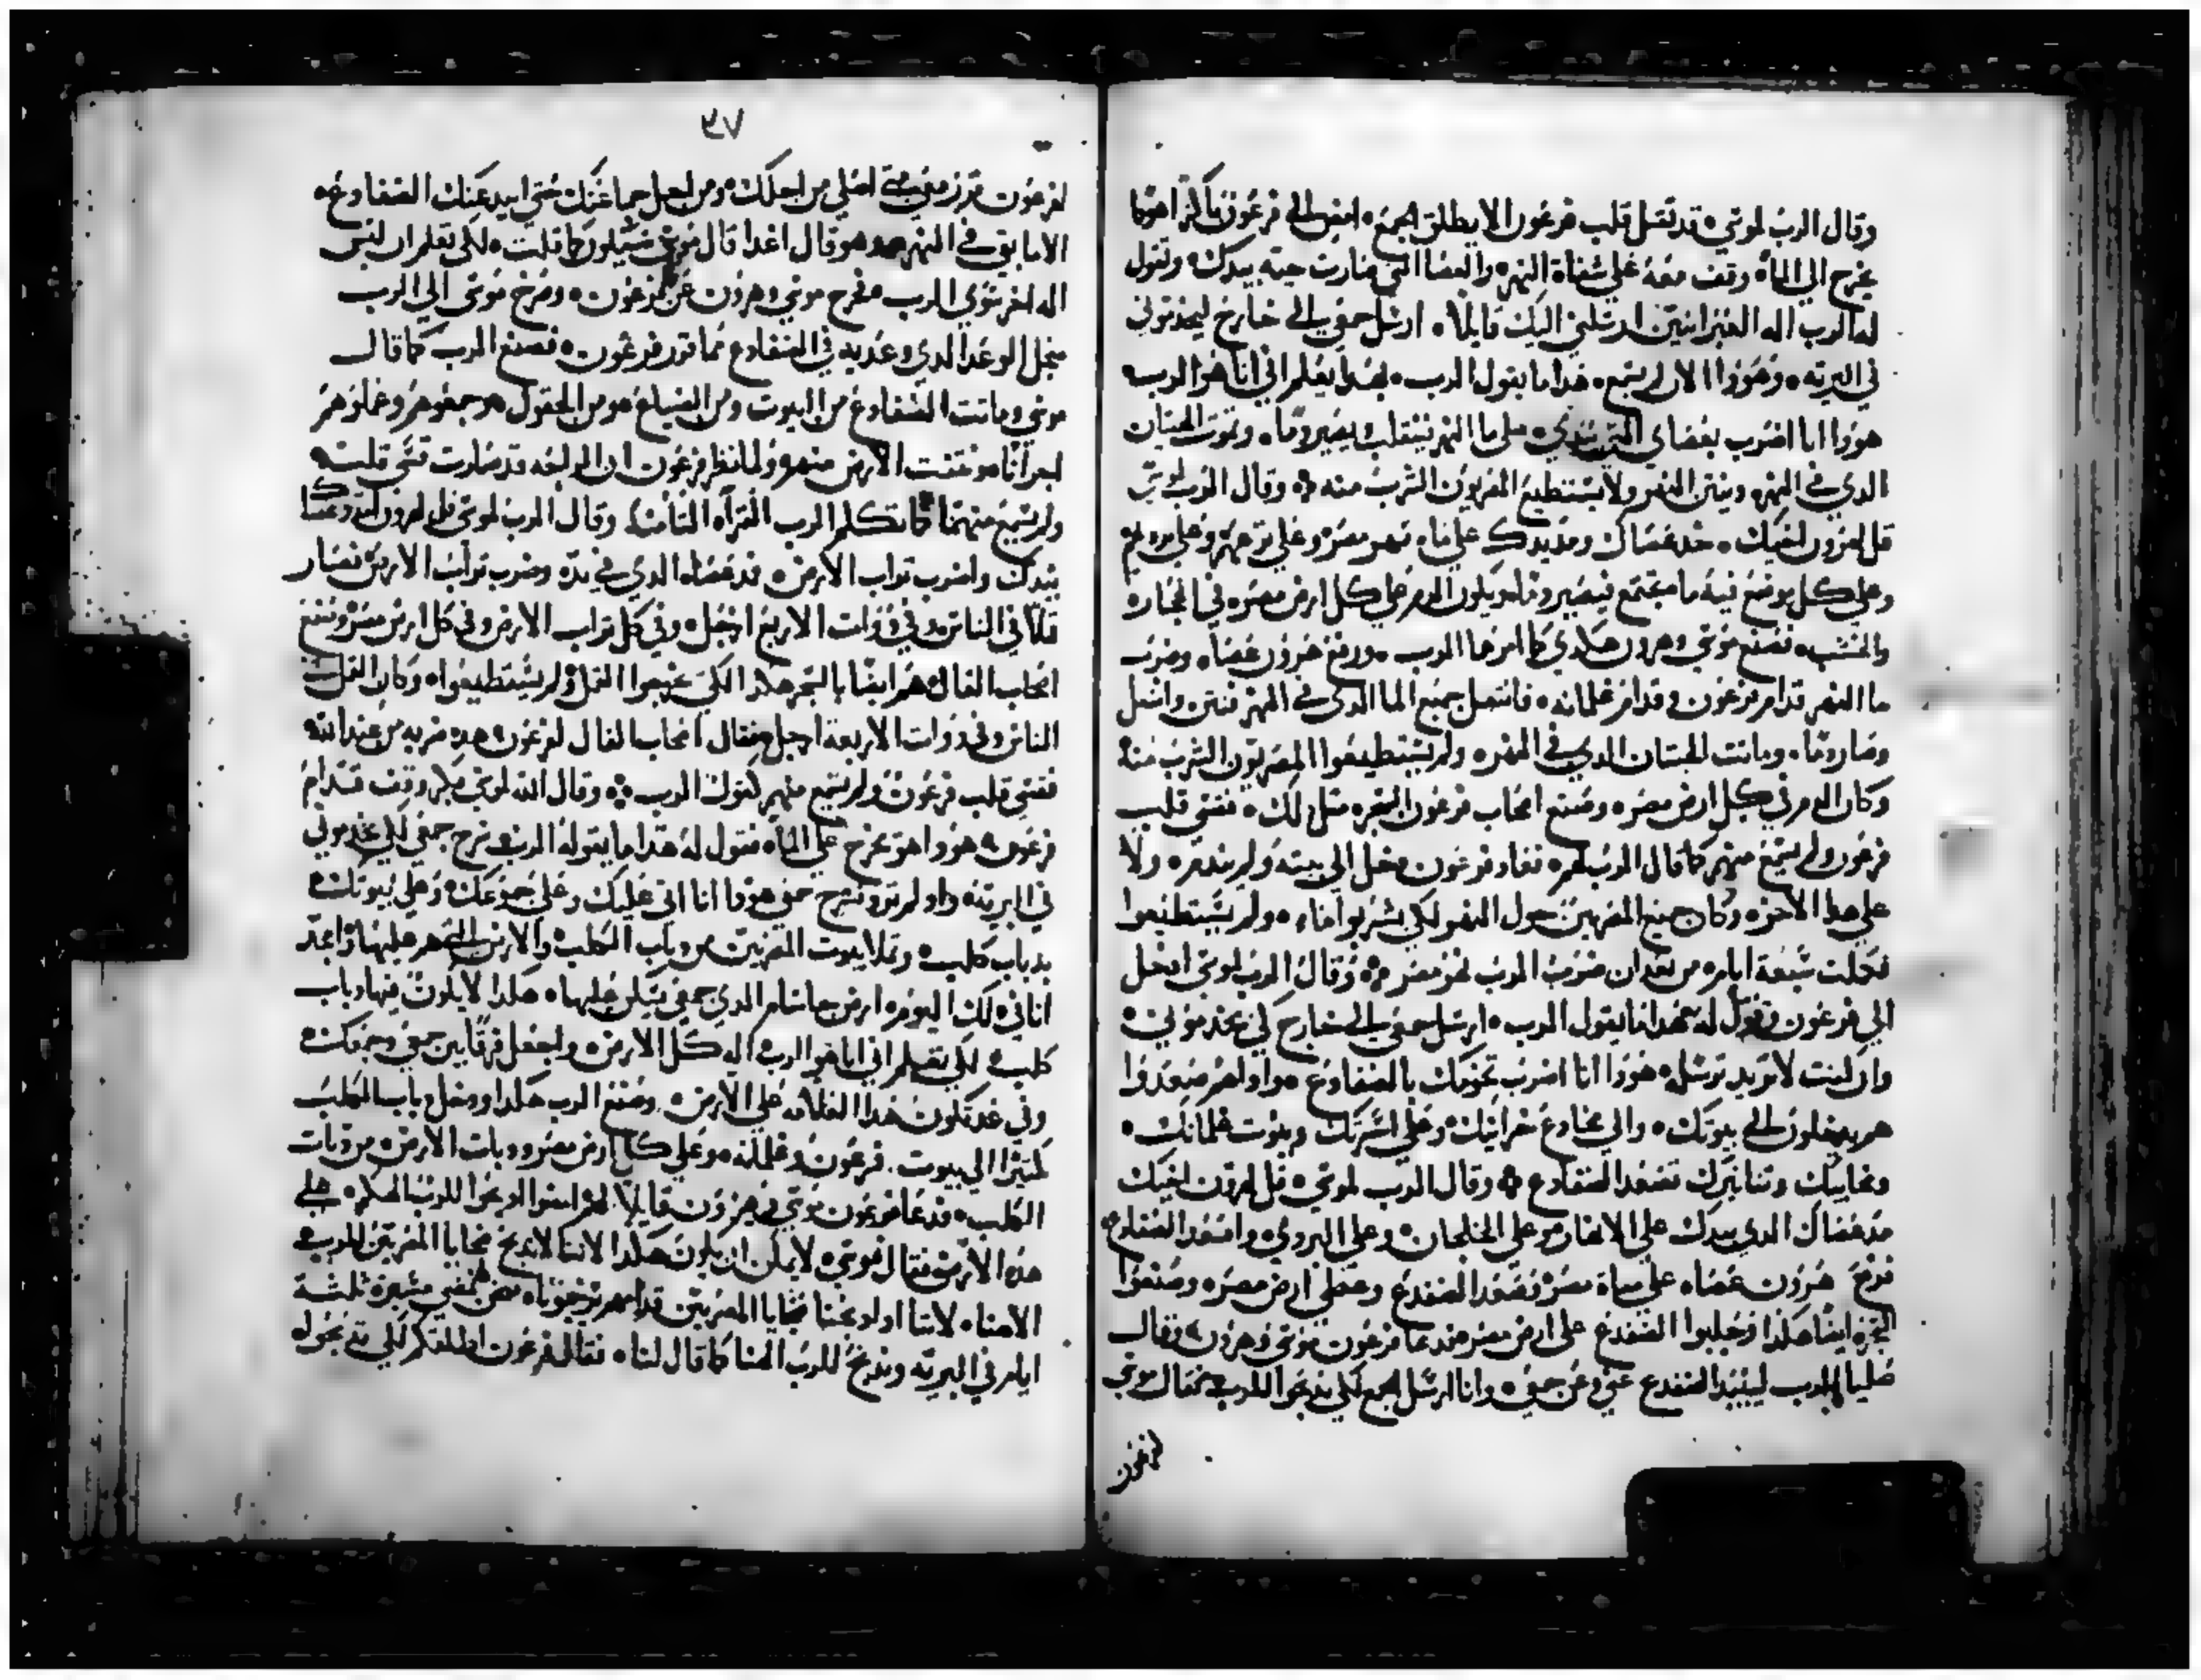 وقال الرب لموسي قد تقسل قلب فرعون الا يطلق الجمع امض الي فرعون باكر اهودا
يخرج الي الماء وقف معه علي شفاة النهر والعصا التي صارت حيه بيدك وتقول
له الرب اله العبرانيين ارسلني اليك قايلا ارسل جمعي الي خارج ليخدموني
في البريه وهودا الان لم يسمع هدا ما يقول الرب بهدا يعلم اني انا هو الرب
هودا انا اضرب بعصاي التي بيدي علي ما النهر فينقلب ويصير دما وتموت الحيتان
الدي في النهر وينتن النهر ولا يستطيع المصريون الشرب منه وقال الرب لموسي
قل لهرون اخيك خد عصاك ومد يدك علي ماء نهر مصر وعلي ترعهم وعلي
وعلي كل موضع فيه ما مجتمع فيصير دما ويكون الدم علي كل ارض مصر في الحجارة
والخشب فصنع موسي وهرون هكدي كما امرهما الرب ورفع هرون عصاه وضرب
ما النهر قدام فرعون وقدام غلمانه فانتقل جميع الما الدي في النهر فنتن وانتقل
وصار دما وماتت الحيتان الدي في النهر ولم يستطيعوا المصريون الشرب منه
وكان الدم في كل ارض مصر وصنع اصحاب فرعون السحره مثل دلك فقسي قلب
فرعون ولم يسمع منهم كما قال الرب لهم فعاد فرعون دخل الي بيته ولم يندم ولا
علي هدا الاخر وكان جميع المصريين حول النهر لكي يشربوا ماء ولم يستطيعوا
فكملت سبعة ايام من بعد ان ضرب الرب نهر مصر وقال الرب لموسي ادخل
الي فرعون وتقول له هدا ما يقول الرب ارسل جمعي الي خارج لكي يخدموني
وان كنت لا تريد ترسله هودا انا اضرب تخومك بالضفادع وادا هم صعدوا
هم يدخلون الي بيوتك والي مخادع خزانيك وعلي اسرتك وبيوت غلمانك
وعجاينك وتنانيرك تصعد الضفادع وقال الرب لموسي قل لهرون اخيك
مد عصاك الدي بيدك علي الانهار وعلي الخلجان وعلي البروي واصعد الضفادع
فرفع هرون عصاه علي مياة مصر فصعد الضفدع وغطي ارض مصر وصنعوا
السحره ايضا هكدا وجلبوا الضفدع علي ارض مصر فدعا فرعون موسي وهرون فقال
صليا للرب ليبيد الضفدع عني وعن جمعي وانا ارسل الجمع لكي يدبحوا للرب فقال موسي
لفرعون
٧٥
لفرعون قرر معي متي اصلي من اجلك ومن اجل جماعتك حتي ابيد عنك الضفادع
الا ما بقي في النهر هو قال اغدا قال موسي سيكون كما قلت لكي تعلم ان ليس
اله اخر سوي الرب فخرج موسي وهرون عن فرعون وصرخ موسي الي الرب
من اجل الوعد الدي وعد به في الضفادع كما قرر فرعون فصنع الرب كما قال
موسي وماتت الضفادع من البيوت ومن الضياع ومن الحقول فجمعوهم وعملوهم
اجرانا فنتنت الارض منهم ولما نظر فرعون ان الراحه قد صارت قسي قلبه
ولم يسمع منهما كما تكلم الرب القراه الثامنه وقال الرب لموسي قل لهرون امدد عصا
بيدك واضرب تراب الارض فمد عصاه الدي في يده وضرب تراب الارض فصار
قملا في الناس وفي دوات الاربع ارجل وفي كل تراب الارض وفي كل ارض مصر وصنع
اصحاب الفال هم ايضا بالسحر هكدا لكي يخرجوا القمل ولم يستطيعوا وكان القمل في
الناس وفي دوات الاربعة ارجل فقال اصحاب الفال لفرعون هده ضربه من عند الله
فقسي قلب فرعون ولم يسمع منهم كقول الرب وقال الله لموسي بكر وقف قدام
فرعون هودا هو يخرج علي الماء فتقول له هدا ما يقوله الرب سرح جمعي لكي يخدموني
في البريه وادا لم ترد تسرح جمعي هودا انا اتي عليك وعلي جموعك وعلي بيوتك
بدباب كلب وتملا بيوت المصريين من دباب الكلب والارض التي هم عليها واعجد
انا في دلك اليوم ارض جاسام الدي جمعي يسكن عليها هكدا لا يكون فيها دباب
كلب لكي تعلم اني انا هو الرب اله كل الارض واجعل فرقا بين جمعي وجمعك
وفي غد تكون هدا العلامه علي الارض وصنع الرب هكدا ودخل دباب الكلب
كتيرا الي بيوت فرعون وغلمانه وعلي كل ارض مصر وبادت الارض من دباب
الكلب فدعا فرعون موسي وهرون قايلا لهم امضوا ادبحوا للرب الهكم علي
هده الارض فقال موسي لا يمكن ان يكون هكدا لاننا لا ندبح ضحايا المصريين للرب
الاهنا لاننا ادا دبحنا ضحايا المصريين قدامهم يرجمونا نحن نمضي مسيرة ثلثة
ايام في البريه وندبح للرب الهنا كما قال لنا فقال فرعون اطلقكم لكي تدبحوا